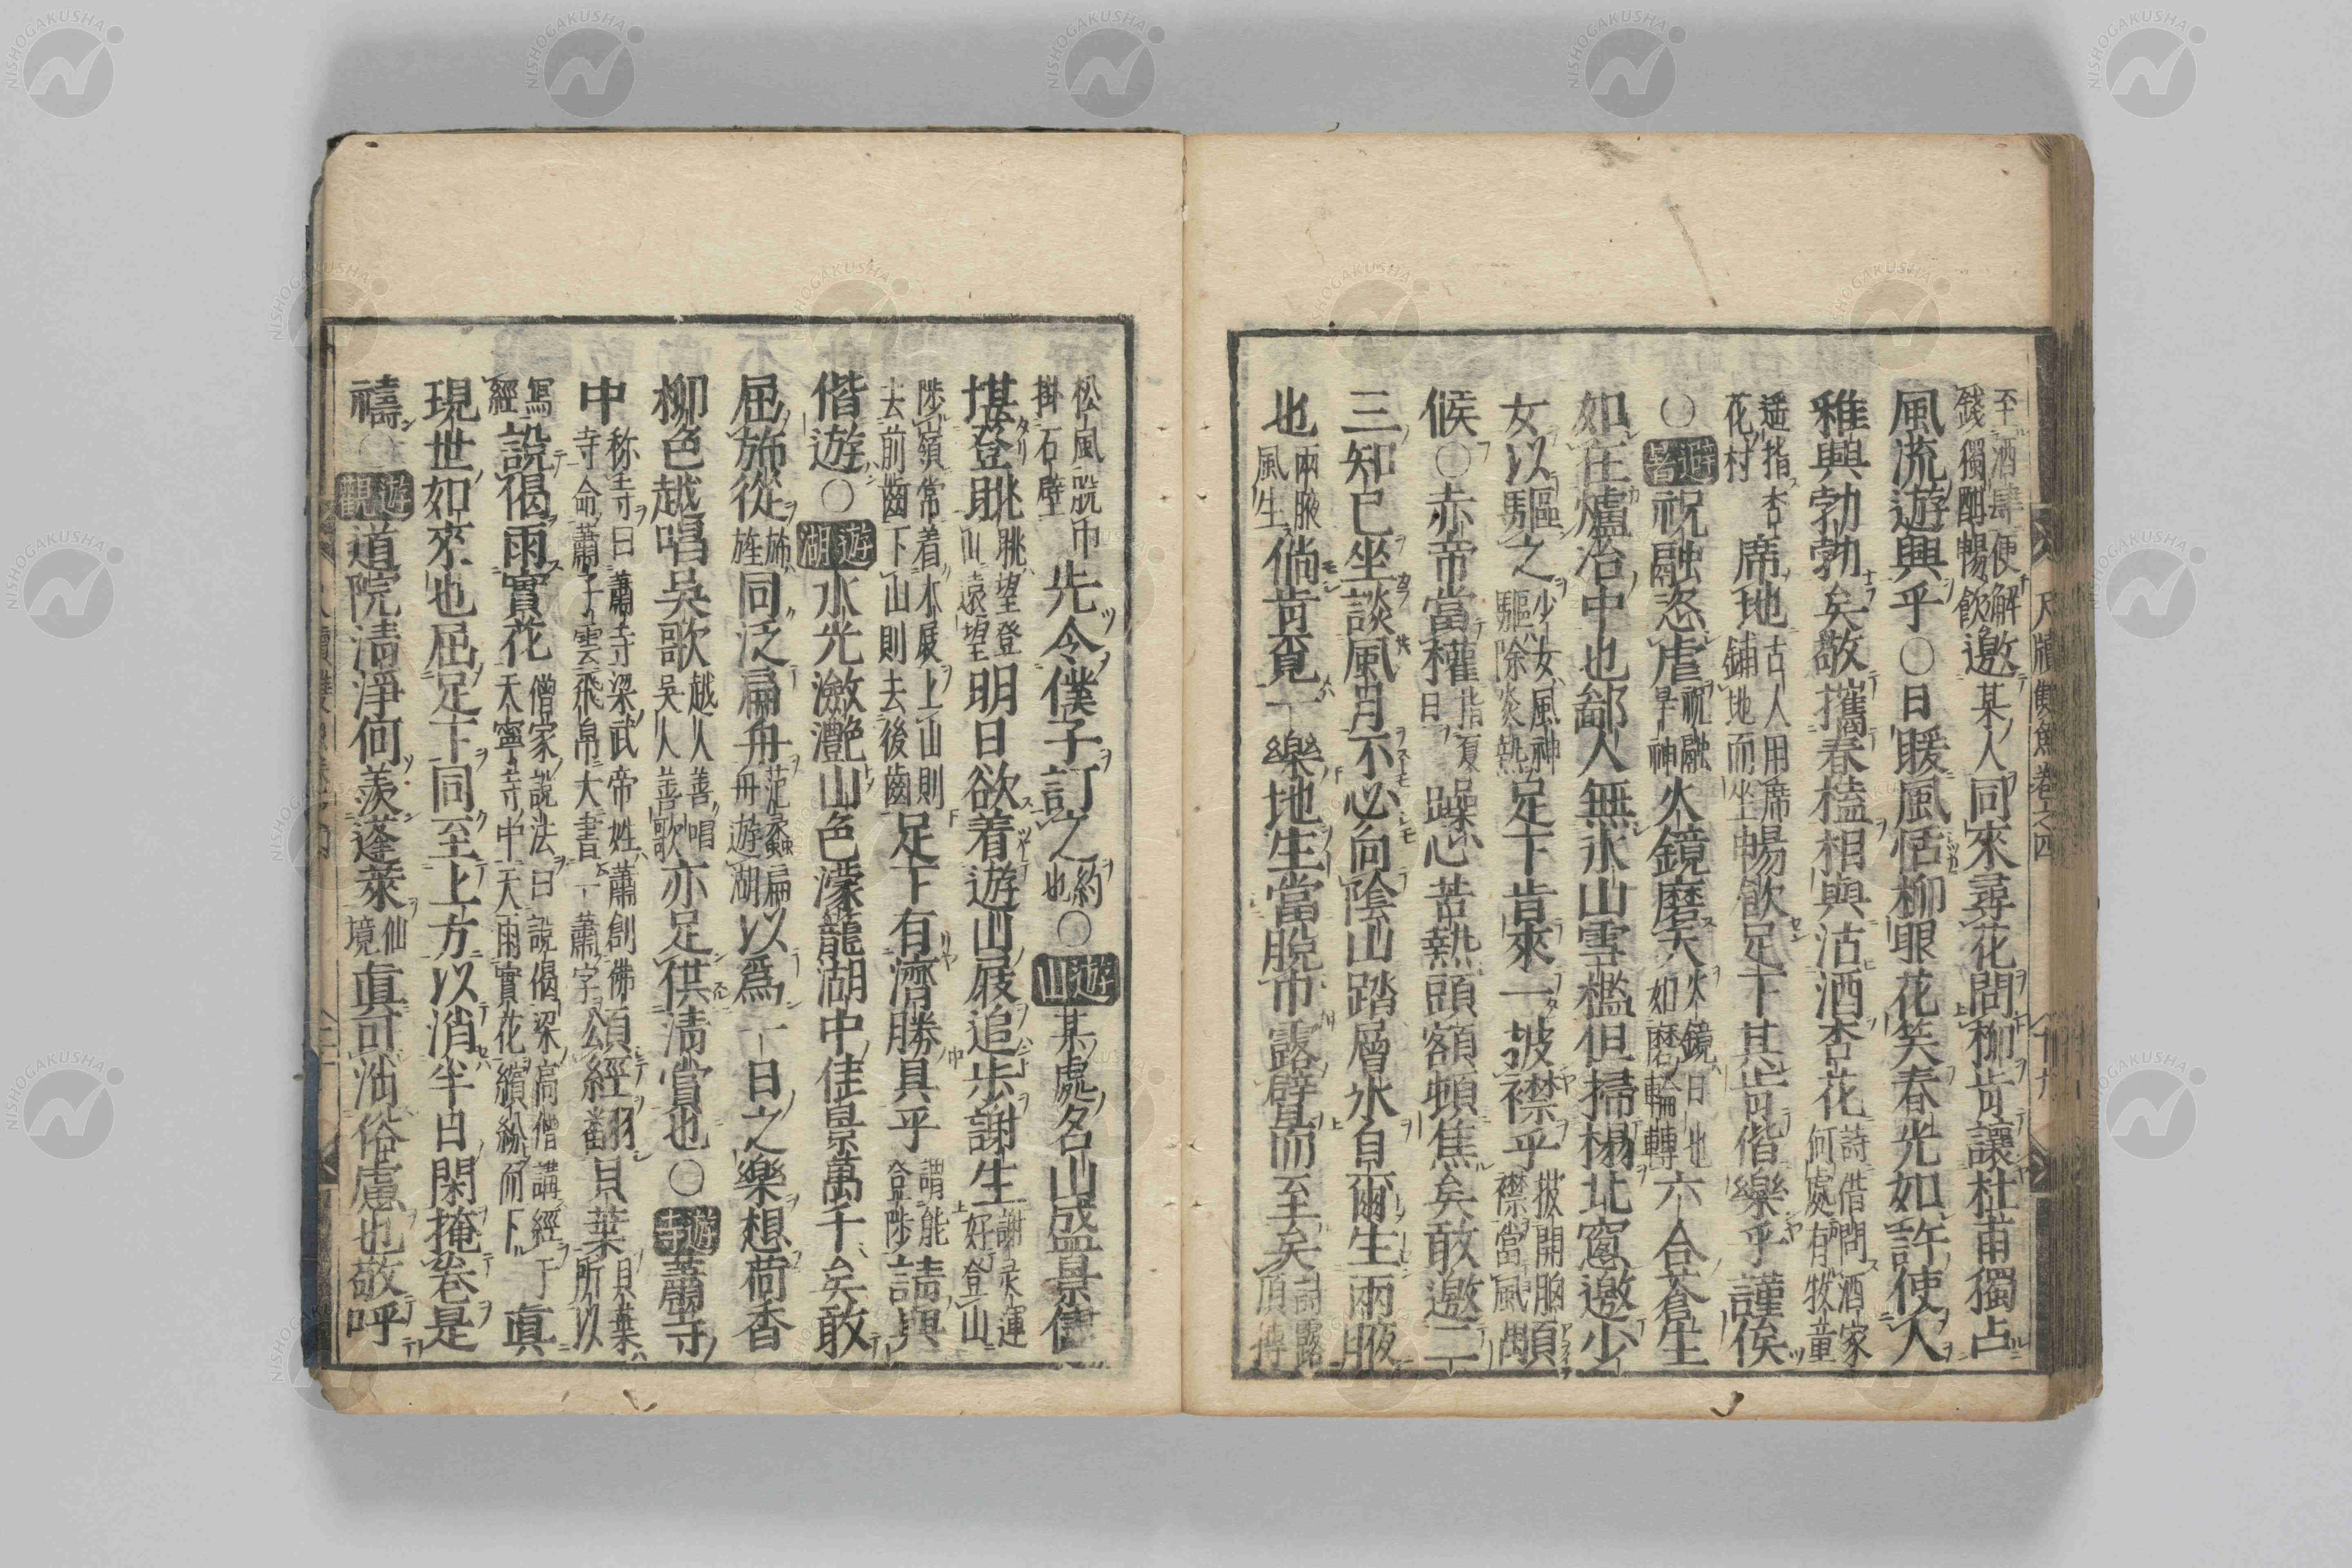 至酒肆便解
錢獨酣暢飲邀某人同來尋花問柳肯讓杜甫獨占
風流遊興乎〇日暖風恬柳眼花笑春光如許使人
雅興勃勃矣敬攜春榼相與沽酒杏花詩借問酒家
何處有牧童
遥指杏
花村席地古人用席
鋪地而坐暢飲足下其肯偕樂乎謹俟
〇遊暑祝融恣虐祝融
旱神火鏡磨天火鏡日也
如磨輪轉六合蒼生
如在爐冶中也鄙人無氷山雪檻但掃榻北窓邀少
女以驅之少女風神
驅除炎熱足下肯來一披襟乎披開胸
襟當風
候〇赤帝當權指夏
日躁心苦熱頭額頓焦矣敢邀二
三知已坐談風月不必向陰山踏層氷自爾生兩腋
也兩腋
風生倘肯覓一樂地生當脫巾露
而至矣
尺牘雙魚卷之四
松風脫巾
掛石壁先令僕子訂之約
也〇遊山某處名山盛景
堪登眺眺望登
山遠望明日欲着遊山屐追步謝生謝灵運
好登山
陟嶺常着木屐上山則
去前齒下山則去後齒足下有濟勝具乎謂能
登陟請與
偕遊〇遊湖水光瀲灔山色濛籠湖中佳景萬千矣敢
屈旆從旆
旌同泛扁舟范蠡扁
舟遊湖以爲一日之樂想荷香
柳色越唱吳歌越人善唱
吳人善歌亦足供淸賞也〇遊寺蕭寺
中称寺曰蕭寺梁武帝姓蕭創佛
寺命蕭子雲飛帛大書一蕭字
經翻貝葉貝葉
所以
寫
經說偈雨寳花僧家說法曰說偈梁高僧講經于
天寧寺中天雨寳花繽紛而下眞
現世如來也屈足下同至上方以消半日閑掩卷是
禱〇遊觀道院淸淨何羨蓬萊仙
境眞可
俗慮也敬呼
NISHOGAKUSHA